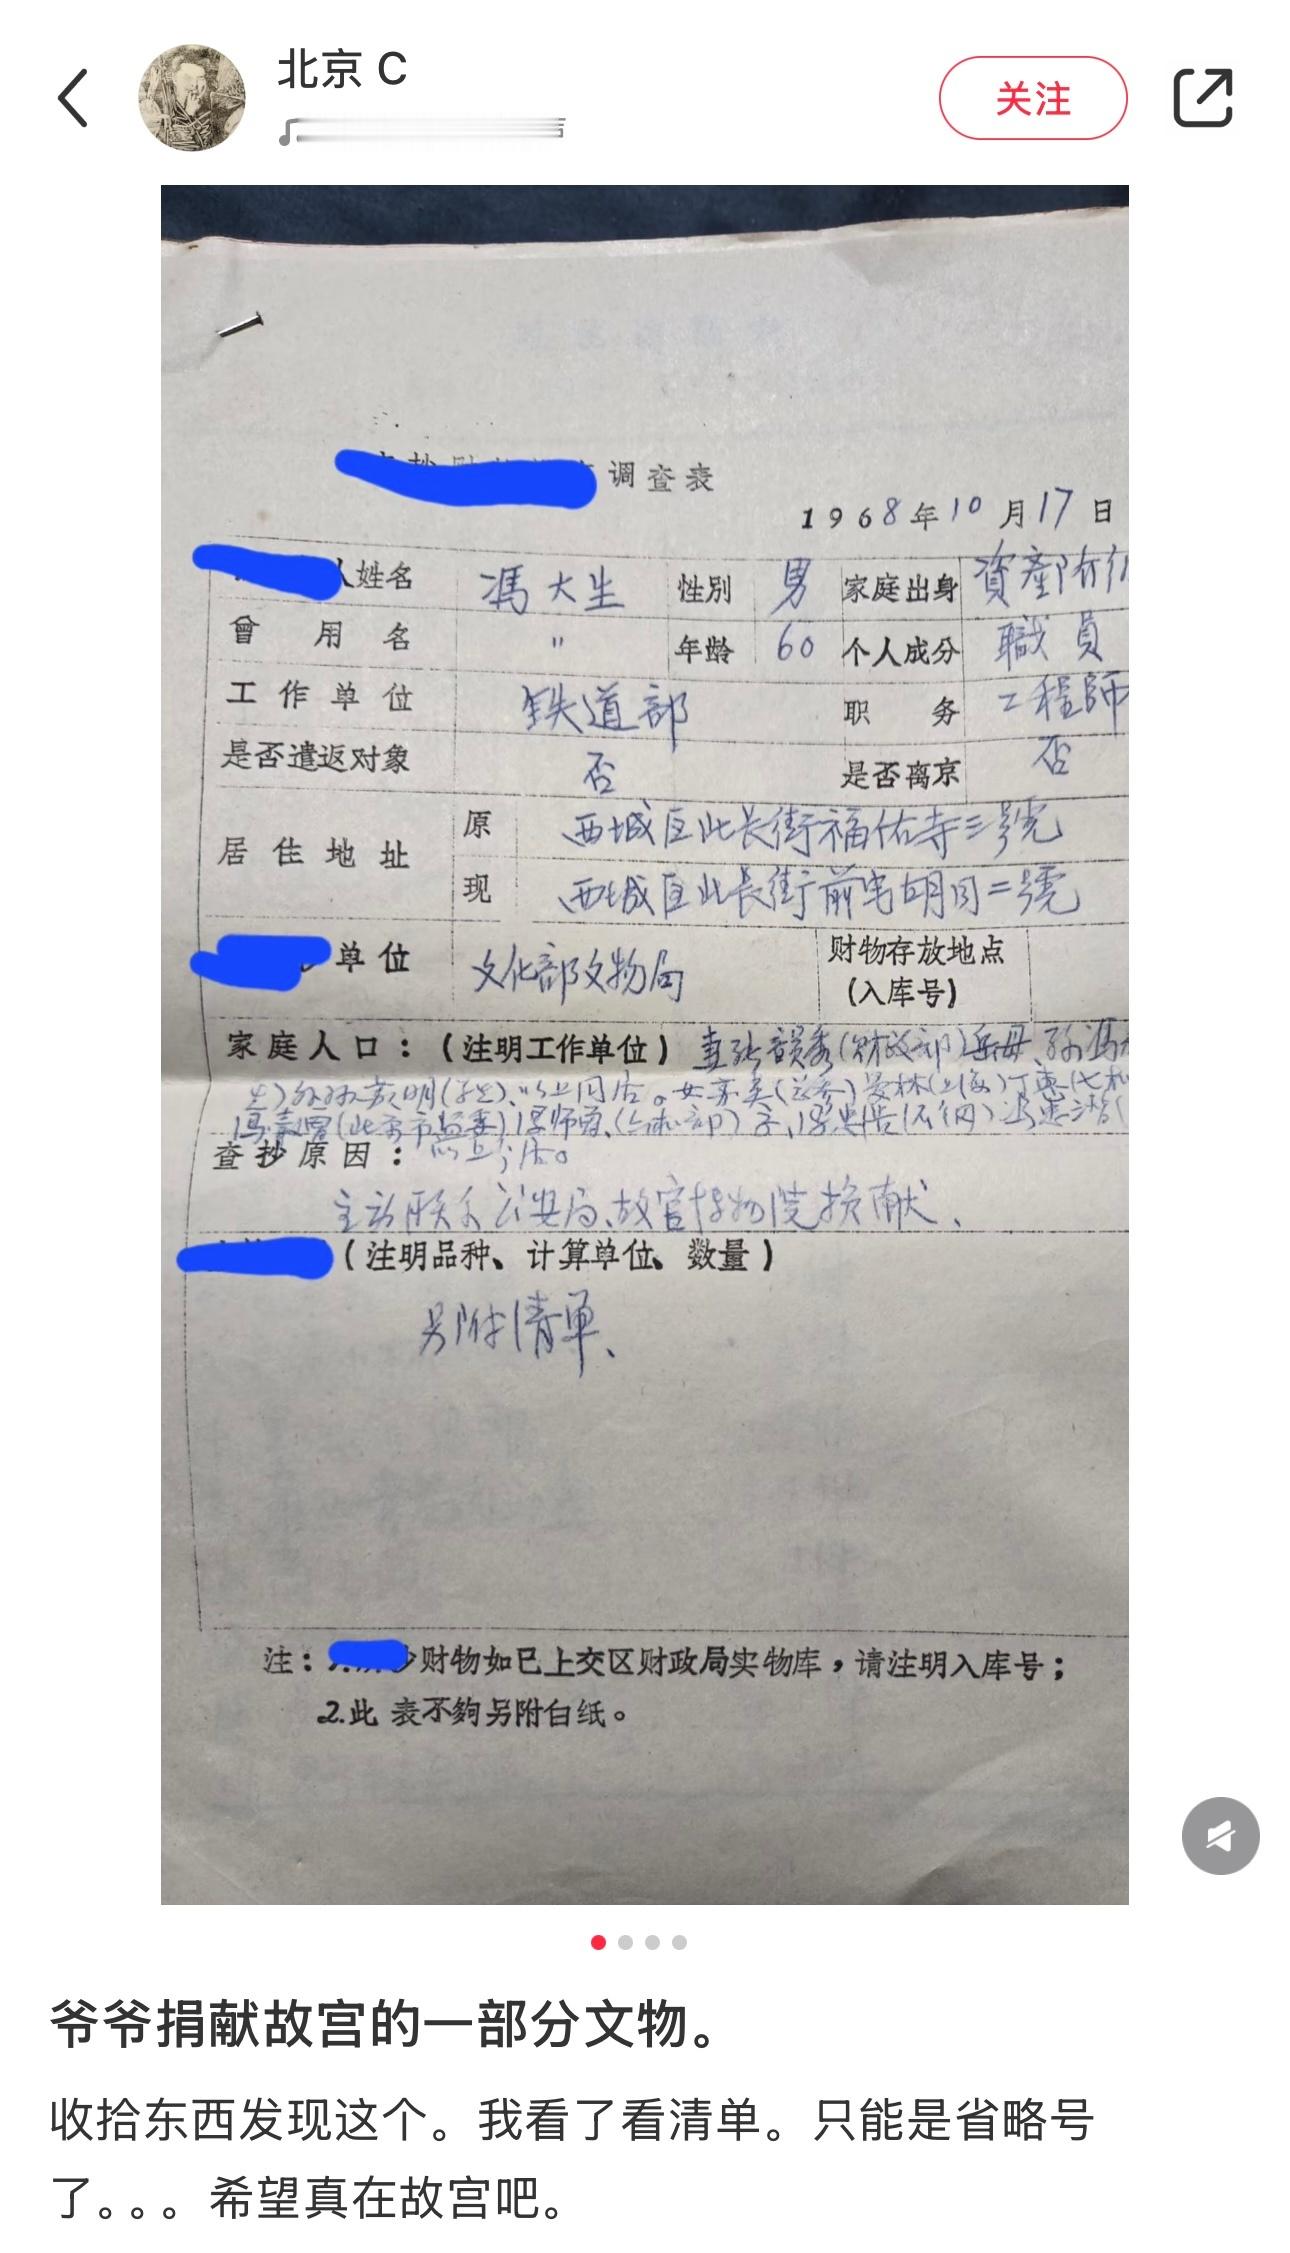 北京 C
关注
调查表
1968年10月17日
人姓名 馮大生 性别 男 家庭出身 資產阶
曾用名 〃 年龄 60 个人成分 職員
工作单位 铁道部 职务 工程師
是否遣返对象 否 是否离京 否
居住地址 原 西城区北长街福佑寺三號
现 西城区北長街前宅胡同二號
单位 文化部文物局 财物存放地点
(入库号)
家庭人口：(注明工作单位) 妻张韻秀(财政部)岳母、孙馮
以上同居。
查抄原因：
主动联系公安局、故宫博物院捐献、
(注明品种、计算单位、数量)
另附清单、
注： 财物如已上交区财政局实物库，请注明入库号；
2.此表不夠另附白纸。
爷爷捐献故宫的一部分文物。
收拾东西发现这个。我看了看清单。只能是省略号
了。。。希望真在故宫吧。